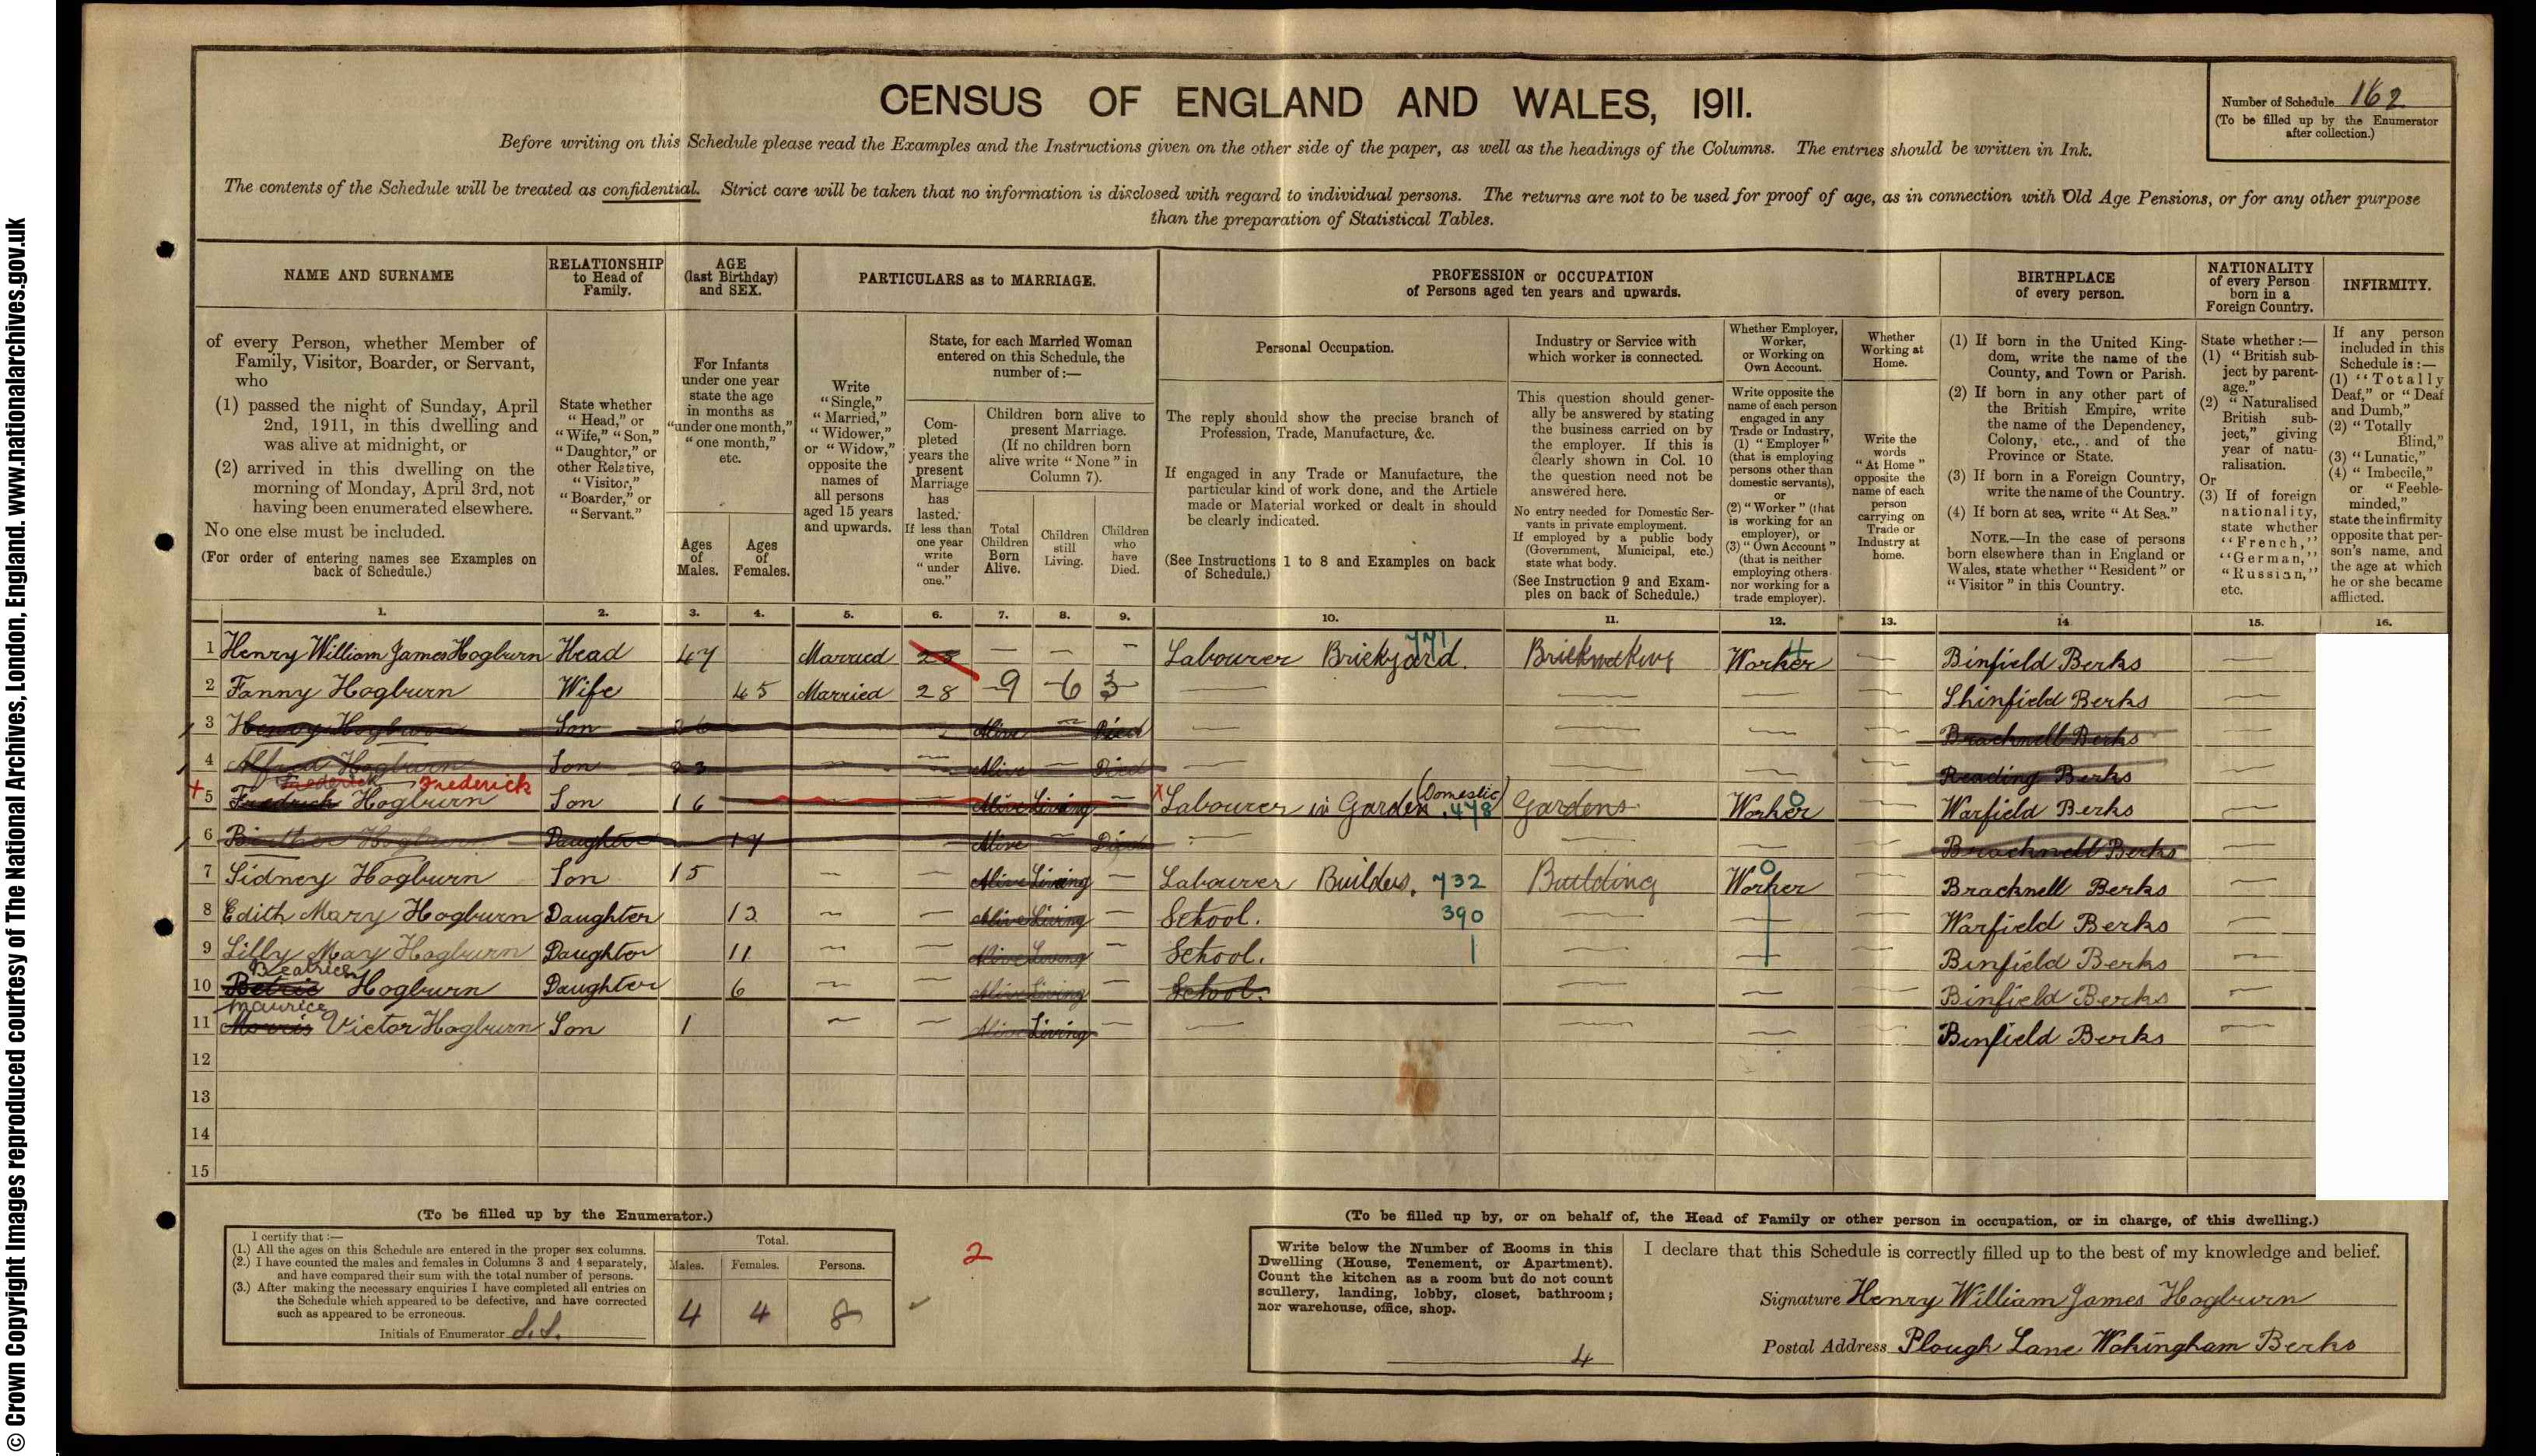 © Crown Copyright Images reproduced courtesy of The National Archives, London, England. www.nationalarchives.gov.uk
CENSUS OF ENGLAND AND WALES, 1911.
Number of Schedule 162
(To be filled up by the Enumerator after collection.)
Before writing on this Schedule please read the Examples and the Instructions given on the other side of the paper, as well as the headings of the Columns. The entries should be written in Ink.
The contents of the Schedule will be treated as confidential. Strict care will be taken that no information is disclosed with regard to individual persons. The returns are not to be used for proof of age, as in connection with Old Age Pensions, or for any other purpose
than the preparation of Statistical Tables.
NAME AND SURNAME
of every Person, whether Member of
Family, Visitor, Boarder, or Servant,
who
(1) passed the night of Sunday, April
2nd, 1911, in this dwelling and
was alive at midnight, or
(2) arrived in this dwelling on the
morning of Monday, April 3rd, not
having been enumerated elsewhere.
No one else must be included.
(For order of entering names see Examples on
back of Schedule.)
RELATIONSHIP
to Head of
Family.
State whether
"Head," or
"Wife," "Son,"
"Daughter," or
other Relative,
"Visitor,"
"Boarder," or
"Servant."
AGE
(last Birthday)
and SEX.
For Infants
under one year
state the age
in months as
"under one month,"
"one month,"
etc.
Ages
of
Males.
Ages
of
Females.
PARTICULARS as to MARRIAGE.
Write
"Single,"
"Married,"
"Widower,"
or "Widow,"
opposite the
names of
all persons
aged 15 years
and upwards.
State, for each Married Woman
entered on this Schedule, the
number of:—
Com-
pleted
years the
present
Marriage
has
lasted.
If less than
one year
write
"under
one."
Children born alive to
present Marriage.
(If no children born
alive write "None" in
Column 7).
Total
Children
Born
Alive.
Children
still
Living.
Children
who
have
Died.
PROFESSION or OCCUPATION
of Persons aged ten years and upwards.
Personal Occupation.
The reply should show the precise branch of
Profession, Trade, Manufacture, &c.
If engaged in any Trade or Manufacture, the
particular kind of work done, and the Article
made or Material worked or dealt in should
be clearly indicated.
(See Instructions 1 to 8 and Examples on back
of Schedule.)
Industry or Service with
which worker is connected.
This question should gener-
ally be answered by stating
the business carried on by
the employer. If this is
clearly shown in Col. 10
the question need not be
answered here.
No entry needed for Domestic Ser-
vants in private employment.
If employed by a public body
(Government, Municipal, etc.)
state what body.
(See Instruction 9 and Exam-
ples on back of Schedule.)
Whether Employer,
Worker,
or Working on
Own Account.
Write opposite the
name of each person
engaged in any
Trade or Industry,
(1) "Employer"
(that is employing
persons other than
domestic servants),
or
(2) "Worker" (that
is working for an
employer), or
(3) "Own Account"
(that is neither
employing others
nor working for a
trade employer).
Whether
Working at
Home.
Write the
words
"At Home"
opposite the
name of each
person
carrying on
Trade or
Industry at
home.
BIRTHPLACE
of every person.
(1) If born in the United King-
dom, write the name of the
County, and Town or Parish.
(2) If born in any other part of
the British Empire, write
the name of the Dependency,
Colony, etc., and of the
Province or State.
(3) If born in a Foreign Country,
write the name of the Country.
(4) If born at sea, write "At Sea."
NOTE.—In the case of persons
born elsewhere than in England or
Wales, state whether "Resident" or
"Visitor" in this Country.
NATIONALITY
of every Person
born in a
Foreign Country.
State whether:—
(1) "British sub-
ject by parent-
age."
(2) "Naturalised
British sub-
ject," giving
year of natu-
ralisation.
Or
(3) If of foreign
nationality,
state whether
"French,"
"German,"
"Russian,"
etc.
INFIRMITY.
If any person
included in this
Schedule is:—
(1) "Totally
Deaf," or "Deaf
and Dumb,"
(2) "Totally
Blind,"
(3) "Lunatic,"
(4) "Imbecile,"
or "Feeble-
minded,"
state the infirmity
opposite that per-
son's name, and
the age at which
he or she became
afflicted.
1. 2. 3. 4. 5. 6. 7. 8. 9. 10. 11. 12. 13. 14. 15. 16.
1 Henry William James Hogburn Head 47 Married 28 — — — Labourer Brickyard. 771 Brickmaking Worker 4 — Binfield Berks —
2 Fanny Hogburn Wife 45 Married 28 9 6 3 — — — — Shinfield Berks —
3 Henry Hogburn Son 26 Alive — Died — — — — Bracknell Berks —
4 Alfred Hogburn Son 23 — — Alive — Died — — — — Reading Berks —
Frederick Frederick
5 Fredrick Hogburn Son 16 — — Alive Living — Labourer in Garden (Domestic) 478 Gardens Worker 0 — Warfield Berks —
6 Hogburn Daughter 17 Alive — Died — — — — Bracknell Berks —
7 Sidney Hogburn Son 15 — — Alive Living — Labourer Builders. 732 Building Worker 0 — Bracknell Berks —
8 Edith Mary Hogburn Daughter 13 — — Alive Living — School. 390 — — — Warfield Berks —
9 Lilly May Hogburn Daughter 11 — — Alive Living — School. — — — Binfield Berks —
Beatrice
10 Betric Hogburn Daughter 6 — — Alive Living — School. — — — Binfield Berks —
Maurice
11 Morris Victor Hogburn Son 1 — — Alive Living — — — — — Binfield Berks —
12
13
14
15
(To be filled up by the Enumerator.)
I certify that:—
(1.) All the ages on this Schedule are entered in the proper sex columns.
(2.) I have counted the males and females in Columns 3 and 4 separately,
and have compared their sum with the total number of persons.
(3.) After making the necessary enquiries I have completed all entries on
the Schedule which appeared to be defective, and have corrected
such as appeared to be erroneous.
Initials of Enumerator S.S.
Total.
Males. Females. Persons.
4 4 8
2
(To be filled up by, or on behalf of, the Head of Family or other person in occupation, or in charge, of this dwelling.)
Write below the Number of Rooms in this
Dwelling (House, Tenement, or Apartment).
Count the kitchen as a room but do not count
scullery, landing, lobby, closet, bathroom;
nor warehouse, office, shop.
4
I declare that this Schedule is correctly filled up to the best of my knowledge and belief.
Signature Henry William James Hogburn
Postal Address Plough Lane Wokingham Berks